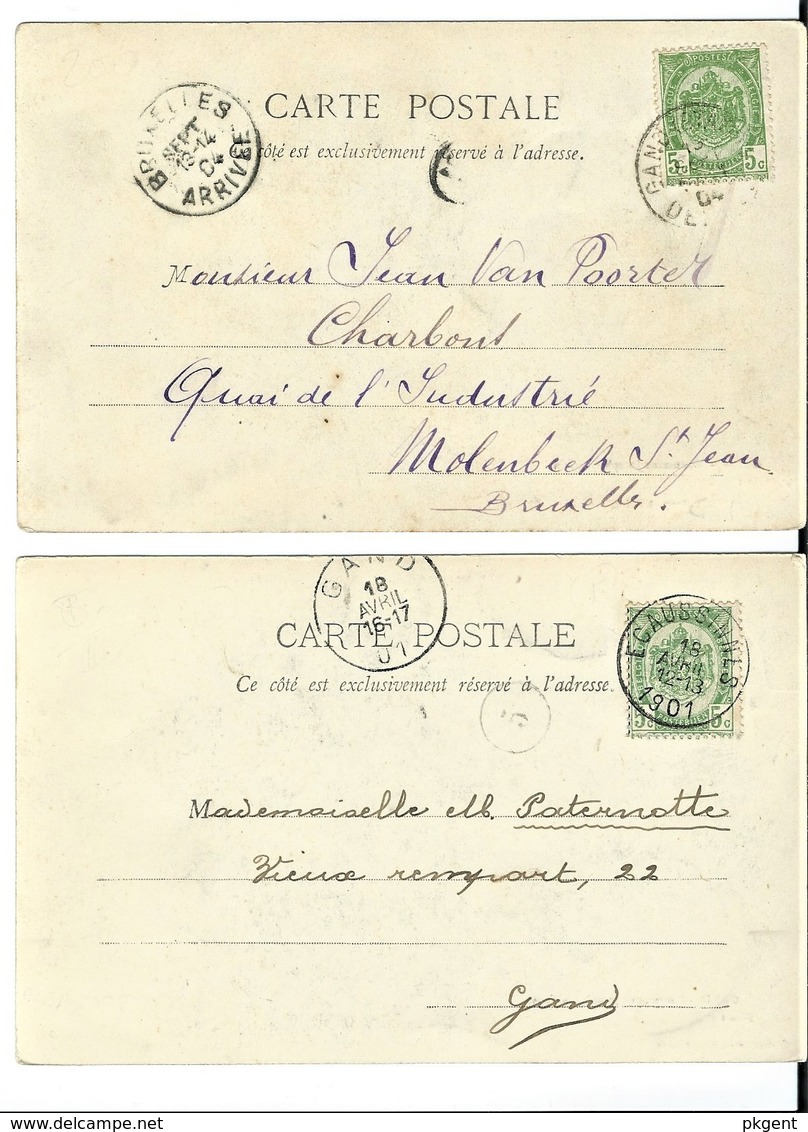 POSTES
5c 5c
BRUXELLES
SEPT
13-14
04
ARRIVÉE
CARTE POSTALE
Ce côté est exclusivement réservé à l'adresse.
GAND
04
Monsieur Jean Van Poorter
Charbons
Quai de l'Industrié
Molenbeek St Jean
Bruxelles.
GAND
18
AVRIL
16-17
01
CARTE POSTALE
Ce côté est exclusivement réservé à l'adresse.
ECAUSSINNES
18
AVRIL
12-13
1901
5c 5c
5
Mademoiselle M. Paternotte
Vieux rempart, 22
Gand
www.delcampe.net
pkgent